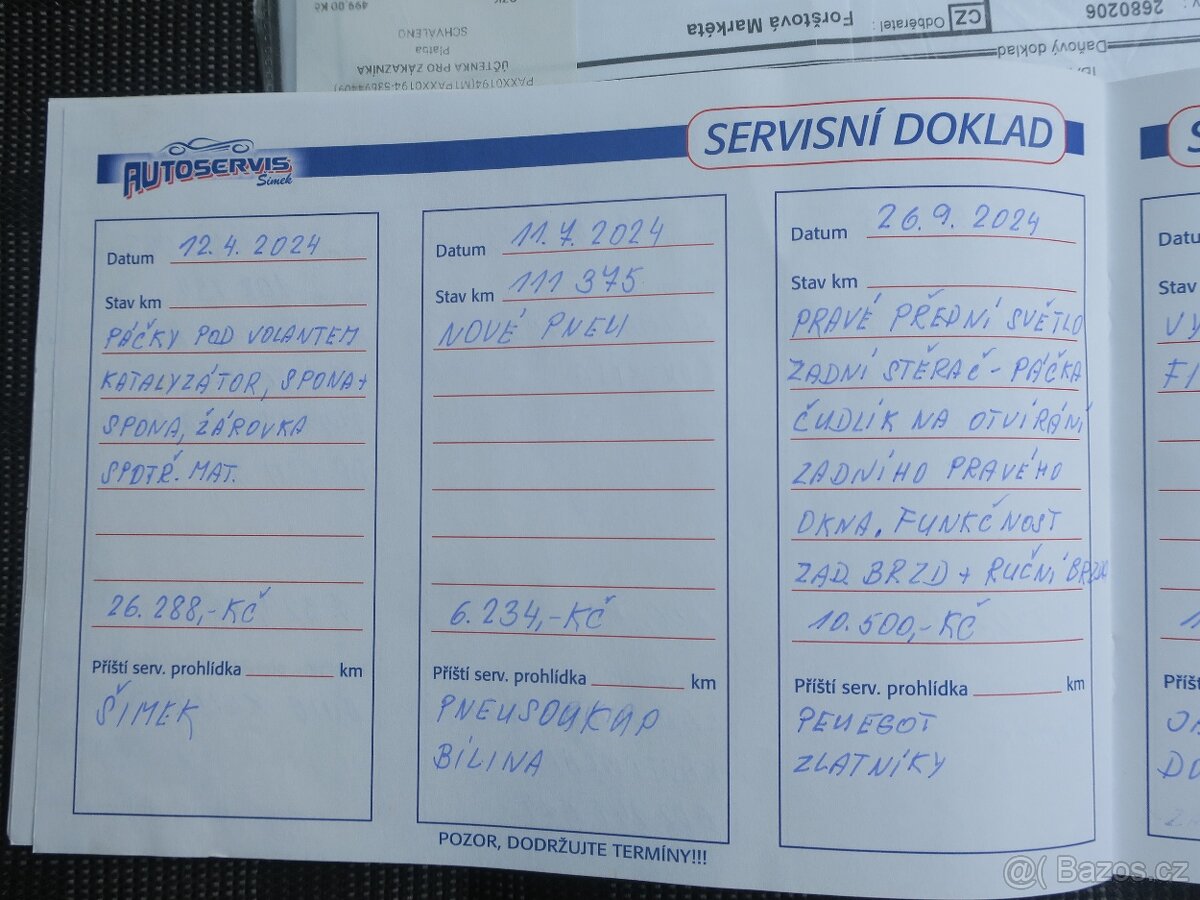 499.00 Kč
SCHVÁLENO
Platba
ÚČTENKA PRO ZÁKAZNÍKA
CZ Odběratel: Forštová Markéta
2680206
Daňový doklad
AUTOSERVIS
Šimek
SERVISNÍ DOKLAD
Datum 12.4.2024
Stav km
PÁČKY POD VOLANTEM
KATALYZÁTOR, SPONA+
SPONA, ŽÁROVKA
SPOTŘ. MAT.
26.288,-KČ
Příští serv. prohlídka km
ŠIMEK
Datum 11.7.2024
Stav km 111 375
NOVÉ PNEU
6.234,-KČ
Příští serv. prohlídka km
PNEUSOUKUP
BÍLINA
POZOR, DODRŽUJTE TERMÍNY!!!
Datum 26.9.2024
Stav km
PRAVÉ PŘEDNÍ SVĚTLO
ZADNÍ STĚRAČ - PÁČKA
ČUDLÍK NA OTVÍRÁNÍ
ZADNÍHO PRAVÉHO
OKNA. FUNKČNOST
ZAD. BRZD + RUČNÍ BRZDA
10.500,-KČ
Příští serv. prohlídka km
PEUEGOT
ZLATNÍKY
Stav
@( Bazos.cz